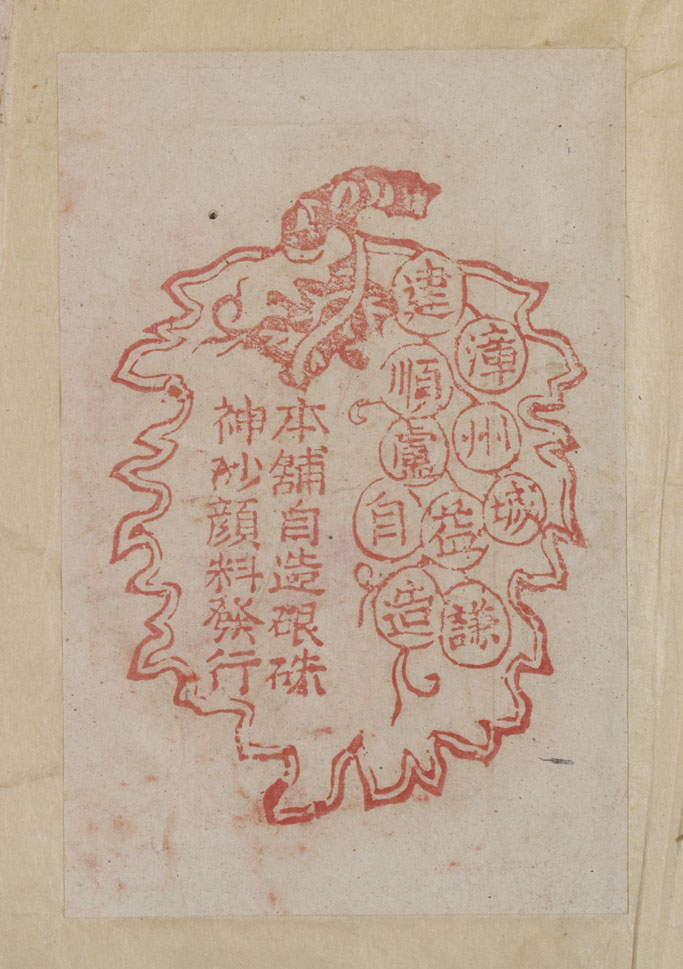 漳州城
建順盧益謙自造
本舖自造硍硃
神砂顔料發行